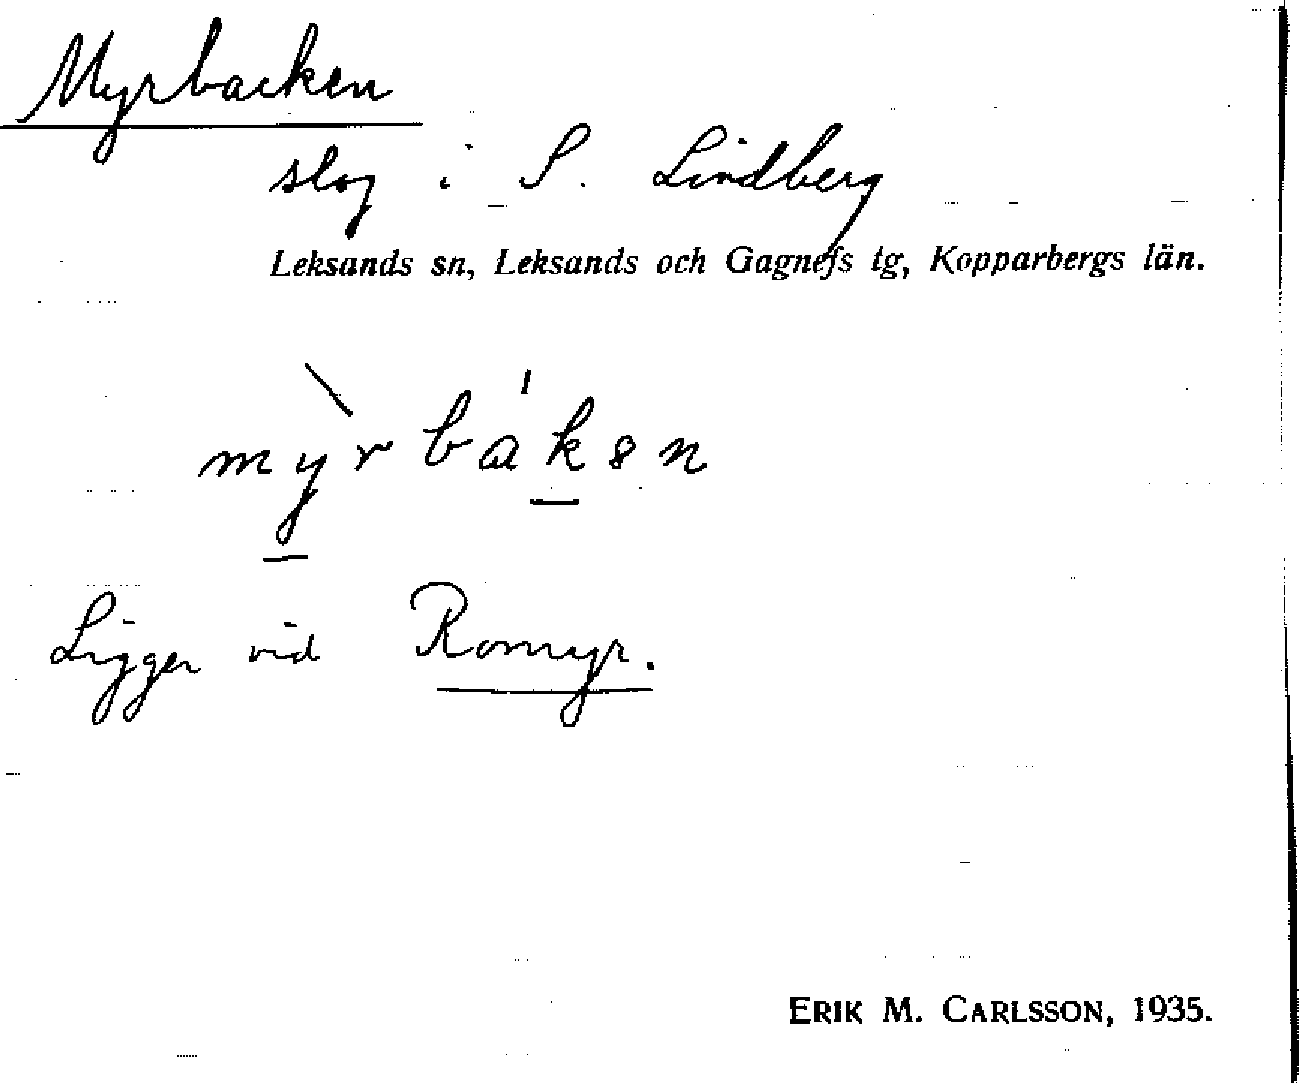 Myrbacken
slog i S. Lindberg
Leksands sn, Leksands och Gagnefs tg, Kopparbergs län.
mỳrbakən
Ligger vid Romyr.
ERIK M. CARLSSON, 1935.